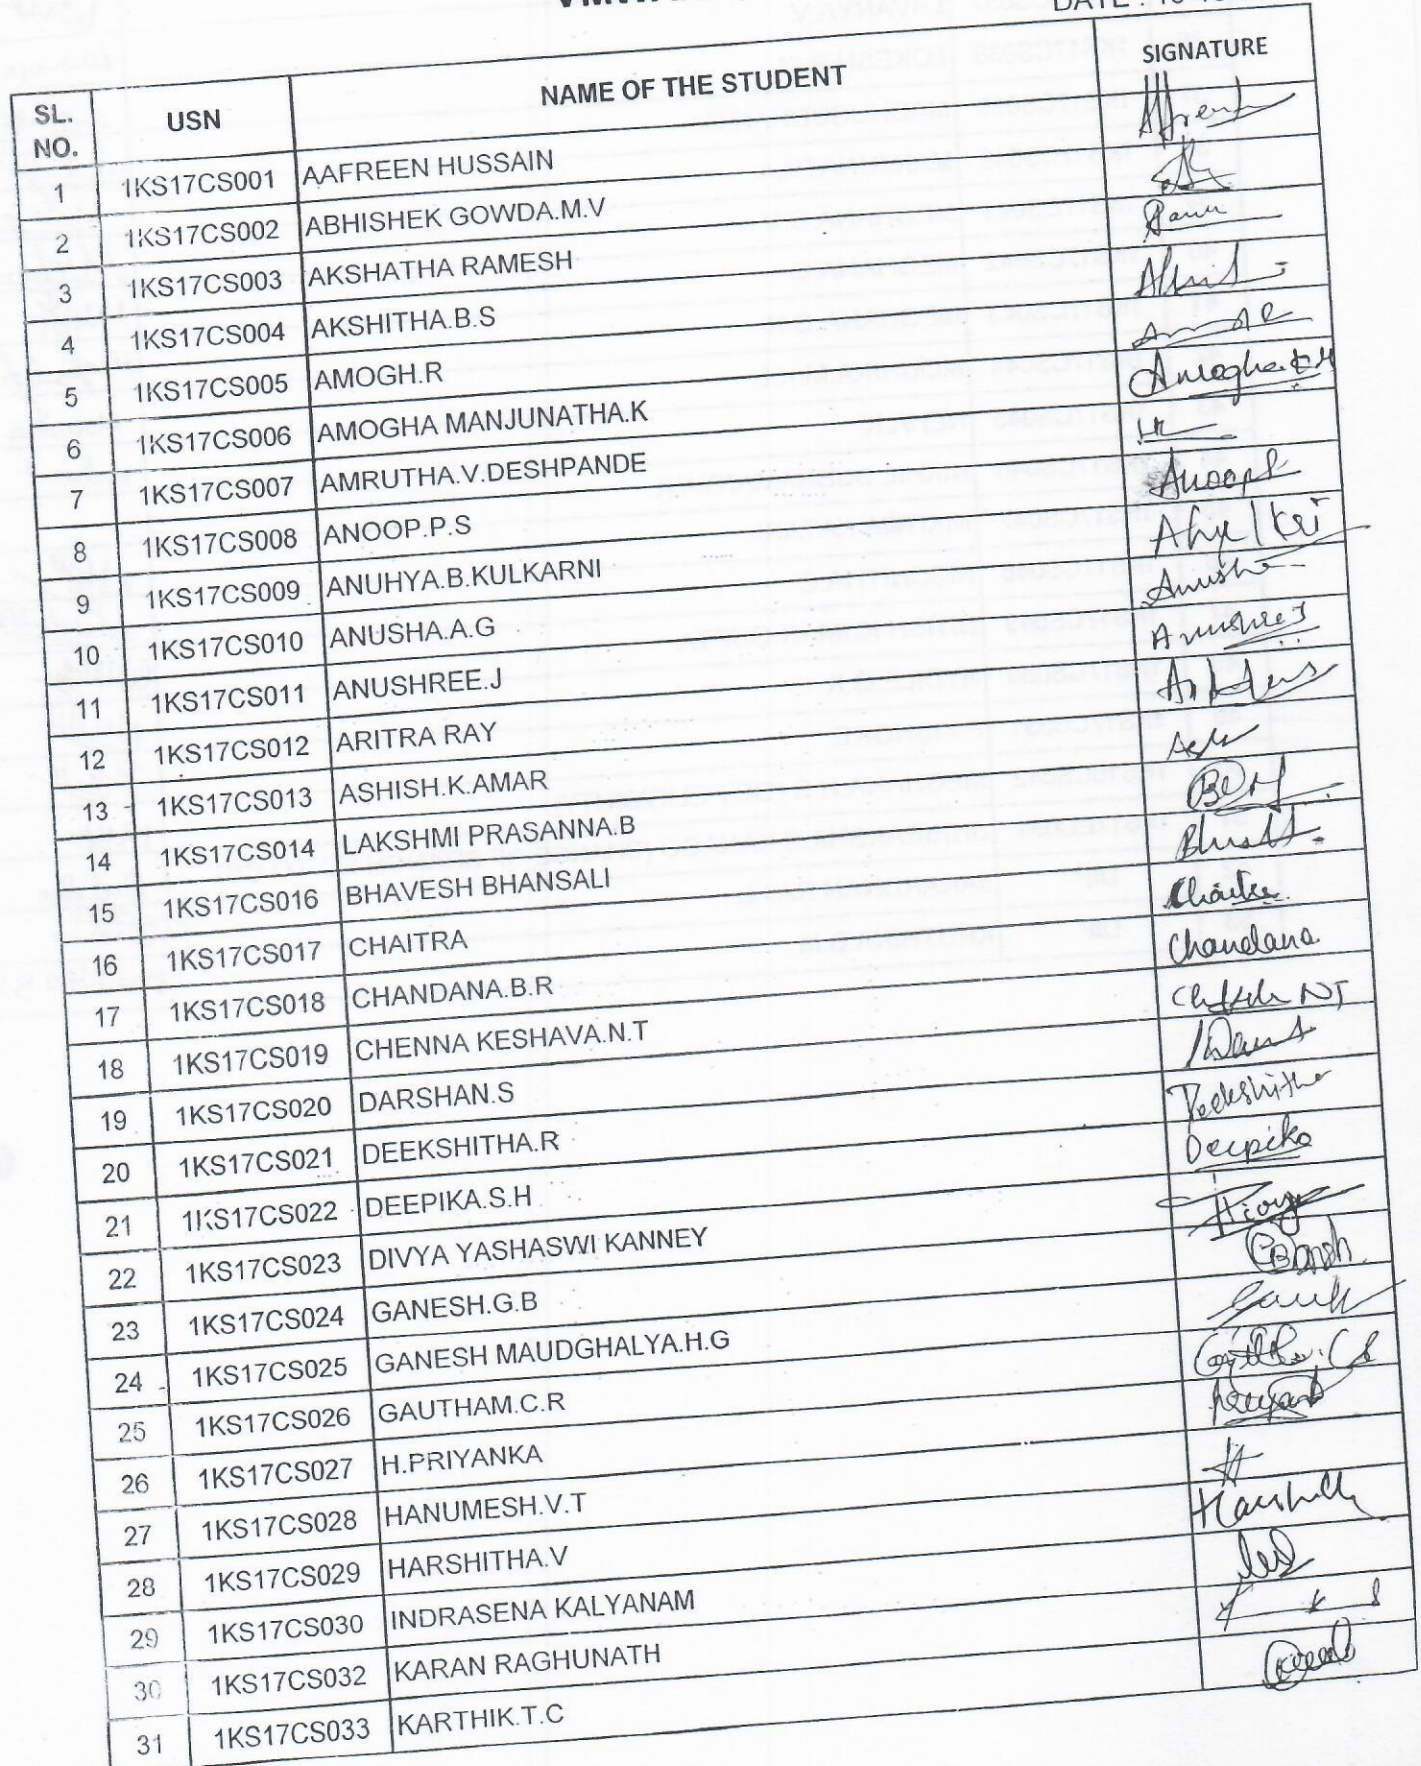 DATE :
SL. NO. USN NAME OF THE STUDENT SIGNATURE
1 1KS17CS001 AAFREEN HUSSAIN
2 1KS17CS002 ABHISHEK GOWDA.M.V
3 1KS17CS003 AKSHATHA RAMESH
4 1KS17CS004 AKSHITHA.B.S
5 1KS17CS005 AMOGH.R
6 1KS17CS006 AMOGHA MANJUNATHA.K
7 1KS17CS007 AMRUTHA.V.DESHPANDE
8 1KS17CS008 ANOOP.P.S
9 1KS17CS009 ANUHYA.B.KULKARNI
10 1KS17CS010 ANUSHA.A.G
11 1KS17CS011 ANUSHREE.J
12 1KS17CS012 ARITRA RAY
13 1KS17CS013 ASHISH.K.AMAR
14 1KS17CS014 LAKSHMI PRASANNA.B
15 1KS17CS016 BHAVESH BHANSALI
16 1KS17CS017 CHAITRA
17 1KS17CS018 CHANDANA.B.R Chandana
18 1KS17CS019 CHENNA KESHAVA.N.T
19 1KS17CS020 DARSHAN.S
20 1KS17CS021 DEEKSHITHA.R Deekshitha
21 1KS17CS022 DEEPIKA.S.H Deepika
22 1KS17CS023 DIVYA YASHASWI KANNEY
23 1KS17CS024 GANESH.G.B
24 1KS17CS025 GANESH MAUDGHALYA.H.G
25 1KS17CS026 GAUTHAM.C.R
26 1KS17CS027 H.PRIYANKA
27 1KS17CS028 HANUMESH.V.T
28 1KS17CS029 HARSHITHA.V
29 1KS17CS030 INDRASENA KALYANAM
30 1KS17CS032 KARAN RAGHUNATH
31 1KS17CS033 KARTHIK.T.C